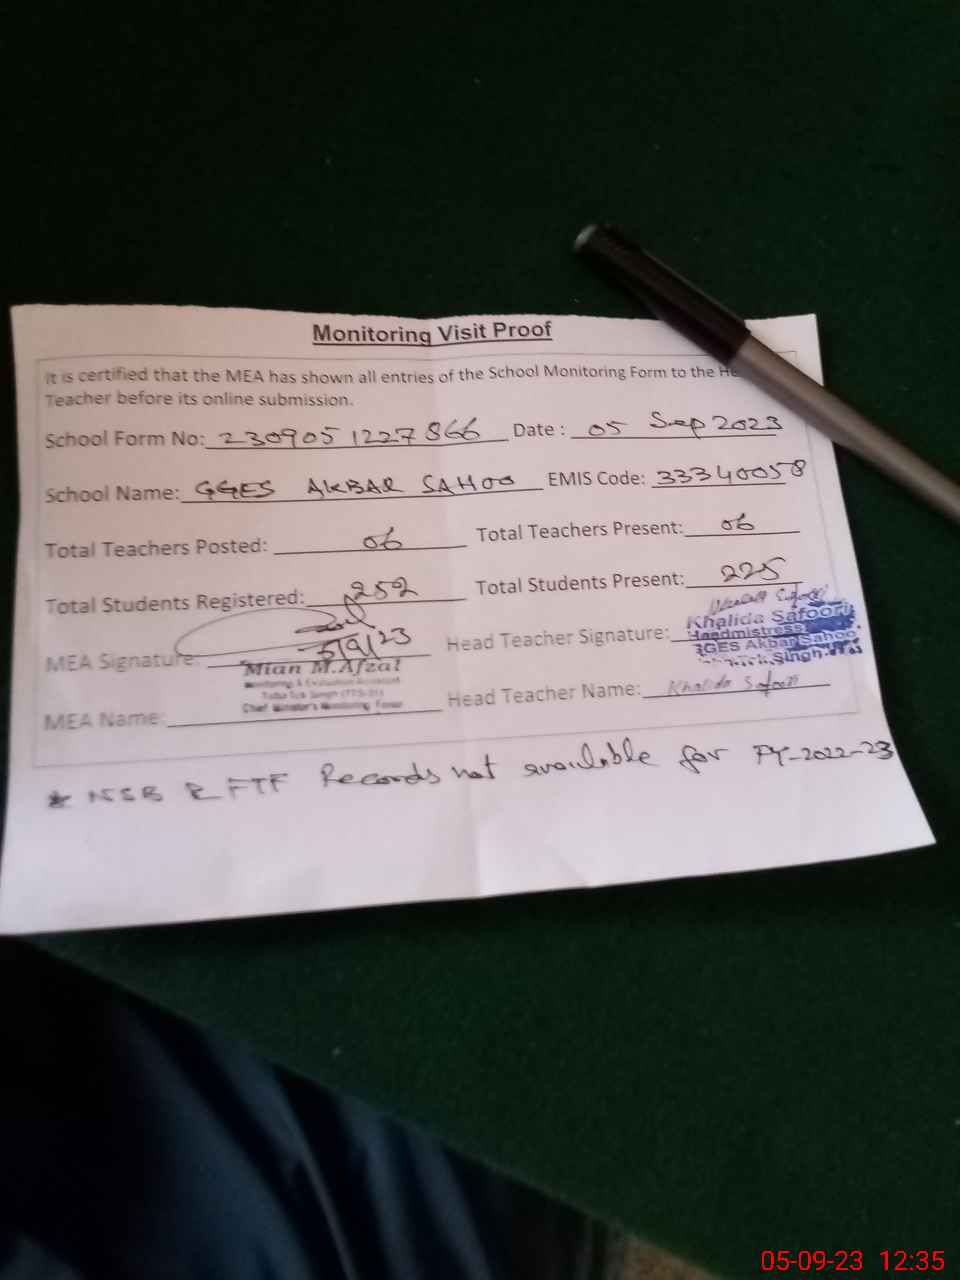 Monitoring Visit Proof
It is certified that the MEA has shown all entries of the School Monitoring Form to the He
Teacher before its online submission.
School Form No: 2309051227866 Date : 05 Sep 2023
School Name: GGES AKBAR SAHOO EMIS Code: 33340058
Total Teachers Posted: 06 Total Teachers Present: 06
Total Students Registered: 252 Total Students Present: 225
MEA Signature: 5/9/23 Head Teacher Signature:
Khalida Safoori
Headmistress
GGES Akbar Sahoo
Mian M.Afzal
Monitoring & Evaluation Assistant
Toba Tek Singh (TTS-21)
Chief Minister's Monitoring Force
MEA Name: Head Teacher Name: Khalida Safoori
* NSB & FTF Records not available for FY-2022-23
05-09-23 12:35